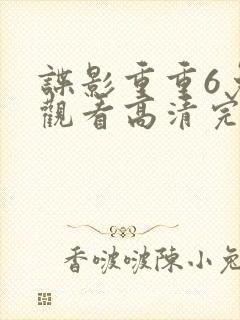 諜影重重6
觀看高清完
香啵啵陳小兔